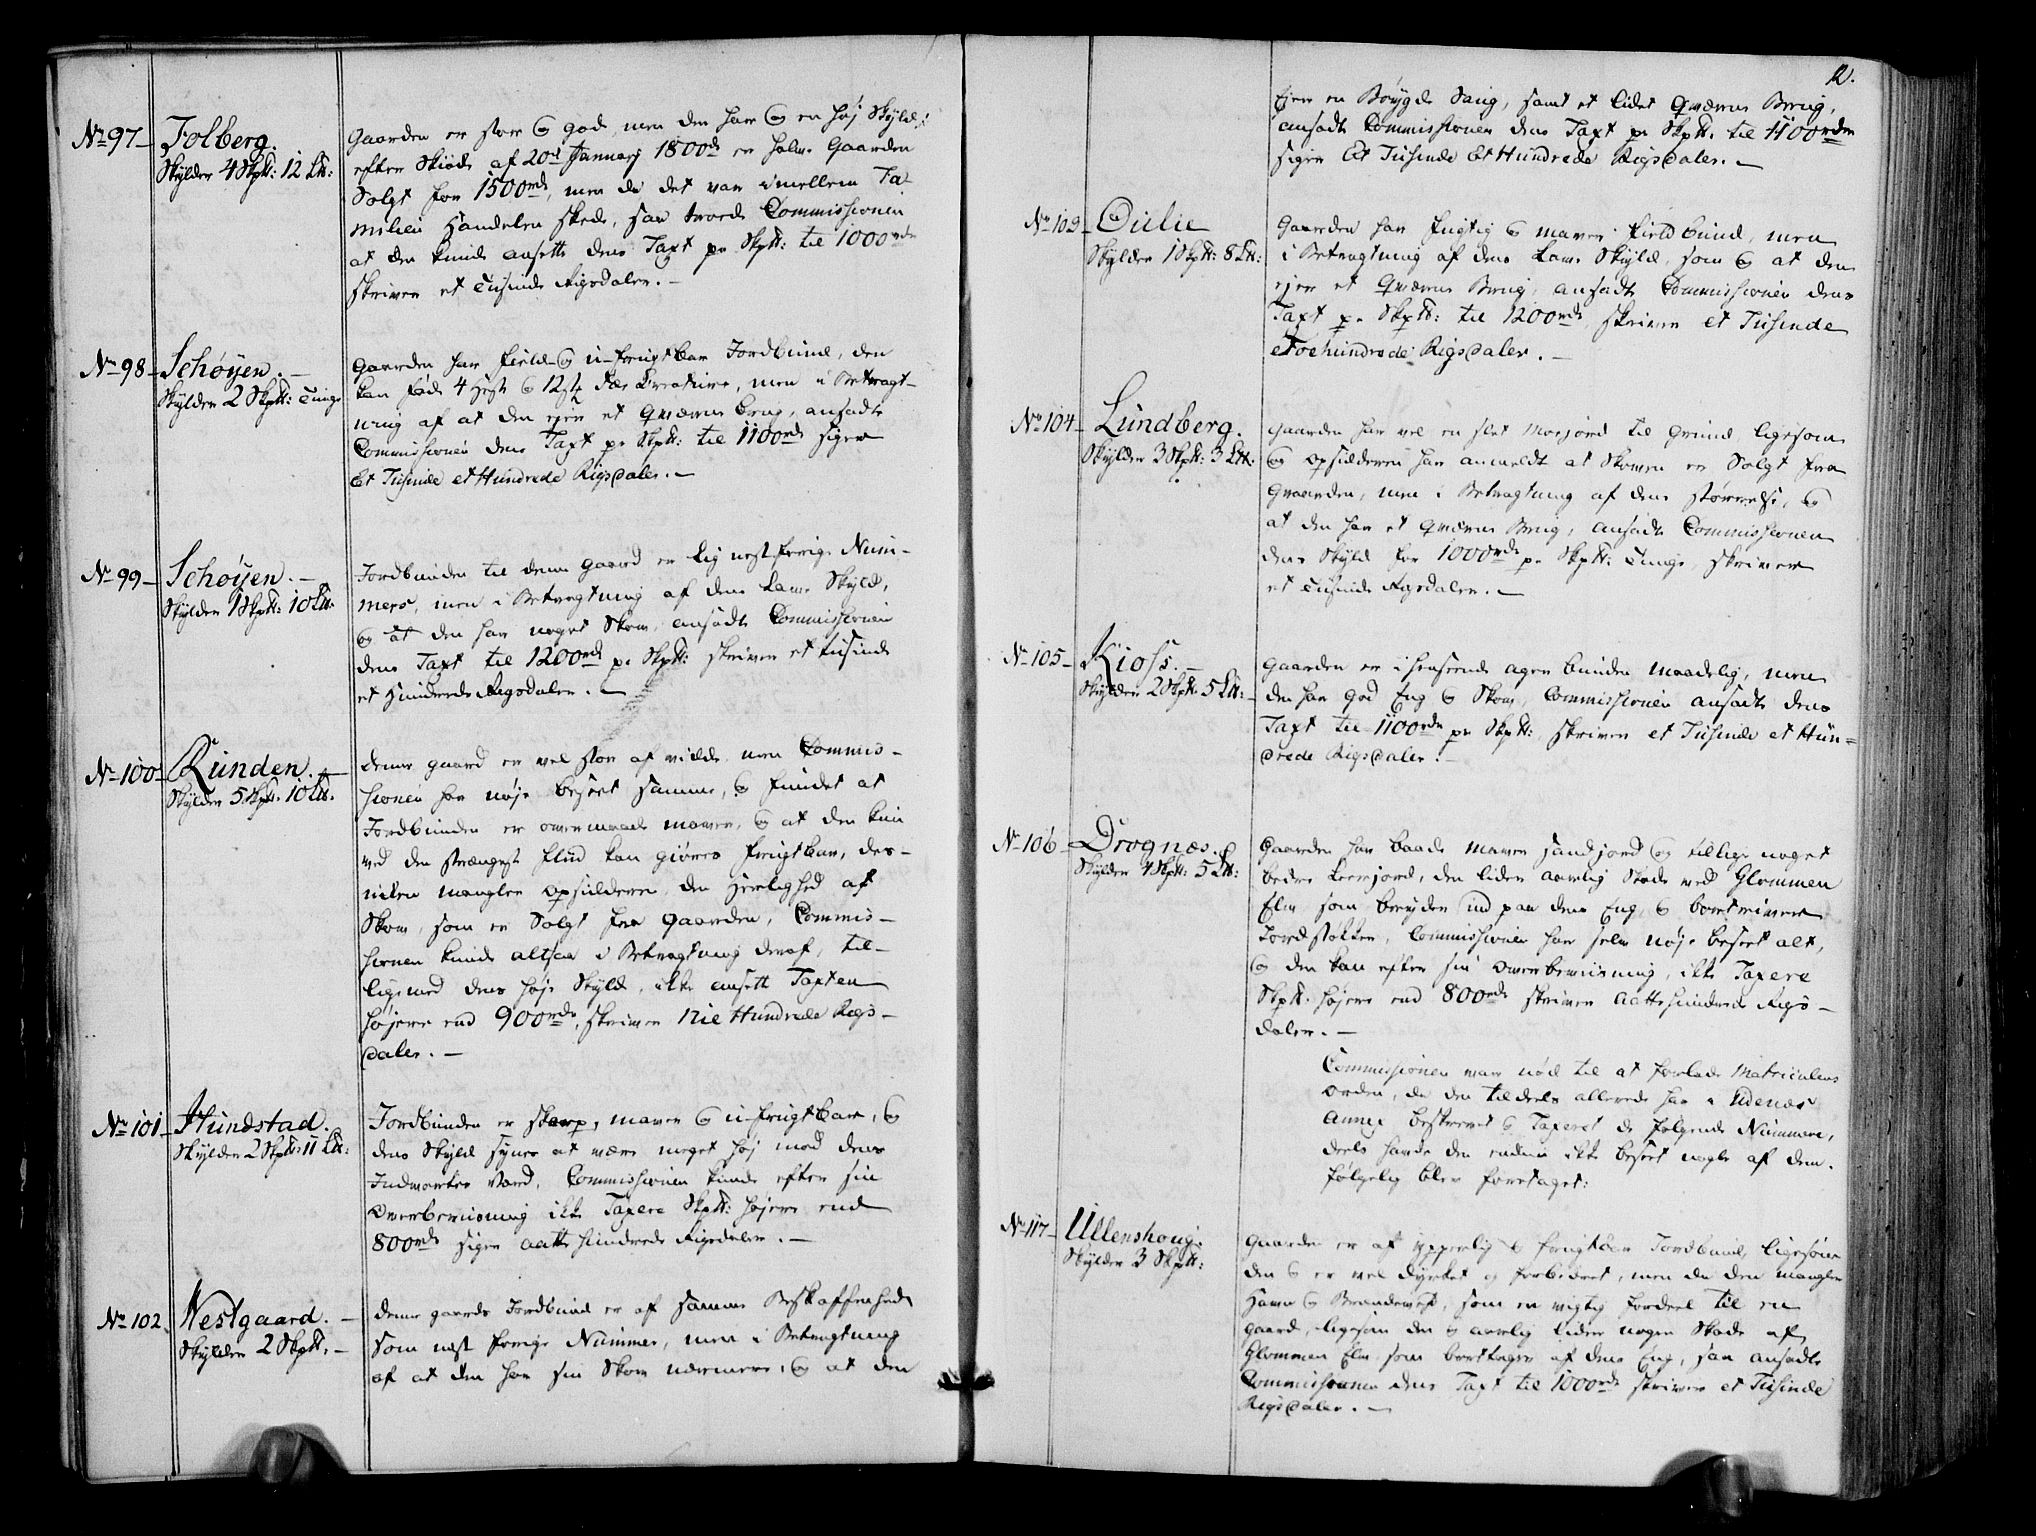 No 97 – Folberg.
Skylder 4 Skpd: 12 Lb:
Gaarden er stor og god, men den har og en høj Skyld,
efter Skiøde af 20de Januarj 1800de er halve Gaarden
Solgt for 1500rd, men da det var imellem Fa-
milien Handelen skede, saa troede Commissionen
at den kunde ansette dens Taxt pr Skpd: til 1000rd
skriver et Tusinde Rigsdaler. –
No 98 – Schøyen. –
Skylder 2 Skpd: Tunge
Gaarden har field- og u-frugtbar Jordbund, den
kan føde 4 Hest og 12 st Fæe Kreature, men i Betragt-
ning af at den ejer et Qværne brug, ansadte
Commissionen dens Taxt pr Skpd: til 1100rd siger
Et Tusinde et Hundrede Rigsdaler. –
No 99 – Schøyen. –
Skylder 1 Skpd: 10 Lb.
Jordbunden til denne gaard er Lig nest forrige Num-
mers, men i Betragtning af dens Lave Skyld,
og at den har noget Skov, ansadte Commissionen
dens Taxt til 1200rd pr Skpd: skriver et tusinde
et Hundrede Rigsdaler. –
No 100 – Runden. –
Skylder 5 Skpd. 10 Lb.
Denne gaard er vel stor af vidde, men Commis-
sionen har nøje beseet samme, og fundet at
Jordbunden er overmaade maver, og at den kun
ved den strængest flid kan giøres frugtbar, des-
uden mangler opsidderen den Herlighed af
Skov, som er Solgt fra gaarden, Commis-
sionen kunde altsaa i Betragtning deraf, til-
ligemed dens høje Skyld, ikke ansett Taxten
højere end 900rd, skriver Nie Hundrede Rigs-
daler. –
No 101 – Hundstad.
Skylder 2 Skpd: 11 Lb:
Jordbunden er skarp, maver og u-frugtbar, og
dens Skyld synes at være meget høj mod dens
Indvortes Værd, Commissionen kunde efter sin
Overbeviisning ikke Taxere Skpd: højere end
800rd siger aatte hundrede Rigsdaler. –
No 102. Westgaard. –
Skylder 2 Skpd. –
Denne gaards Jordbund er af samme Beskaffenhed
som nest forrige Nummer, men i Betragtning
af at den har sin Skov nærmere, og at den
12.
Ejer en Bøygde Saug, samt et lidet Qværne Brug,
ansadte Commissionen dens Taxt pr Skpd. til 1100rdr
siger Et Tusinde Et Hundrede Rigsdaler. –
No 103 – Oulie
Skylder 1 Skpd: 8 Lb:
Gaarden har fugtig og maver field bund, men
i Betragtning af dens Lave Skyld, som og at den
ejer et Qværne Brug, ansadte Commissionen dens
Taxt pr Skpd: til 1200rd, skriver et Tusinde
et Toehundrede Rigsdaler. –
No 104 – Lundberg.
Skylder 3 Skpd: 3 Lb:
Gaarden har vel en slet Morjord til grund, ligesom
og opsidderen har anmeldt at Skoven er Solgt fra
Gaarden, men i Betragtning af dens størrelse, og
at den har et Qværne Brug, ansadte Commissionen
dens Skyld for 1000rd pr Skpd: Tunge, skriver
et Tusinde Rigsdaler. –
No 105 – Kioss. –
Skylder 2 Skpd. 5 Lb: –
Gaarden er i henseende ager bunden maadelig, men
den har god Eng og Skov, Commissionen ansadte dens
Taxt til 1100rdr pr Skpd: skriver et Tusinde et Hun-
drede Rigsdaler. –
No 106 – Drognæs.
Skylder 4 Skpd: 5 Lb:
Gaarden har baade maver sandjord og tillige noget
bedre Leerjord, den lider aarlig Skade ved Glommen
Elv som bryder ind paa dens Eng, og bortriver
Jordstøkker, Commissionen har selv nøje beseet alt,
og den kan efter sin Overbeviisning, ikke Taxere
Skpd. højere end 800rd skriver aatte hundrede Rigs-
daler. –
Commissionen var nød til at forlade Matriculens
orden, da den tildeels allerede har i Udenæs
Annex beskrevet og Taxeret de følgende Nummere,
deels havde den endnu ikke beseet nogle af dem.
følgelig blev foretaget:
No 117 – Ullenshoug.
Skylder 3 Skpd:
Gaarden er af ypperlig og frugtbar Jordbund, ligesom
den og er vel dyrket og forbedret, men da den mangler
Havn og Brændeved, som en vigtig fordeel til en
gaard, ligesom den og aarlig lider nogen Skade af
Glommen Elv som borttager af dens Eng, saa ansadte
Commissionen dens Taxt til 1000rd skriver et Tusinde
Rigsdaler. –